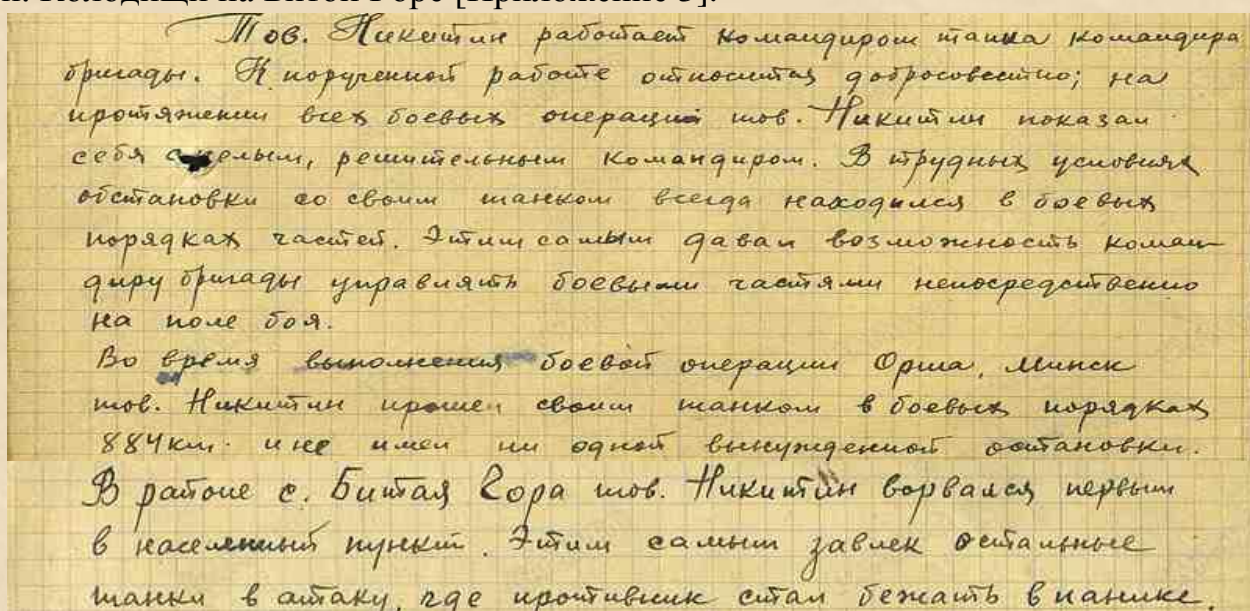 Колодищи на Битой Горе [Приложение 3].
Тов. Никитин работает командиром танка командира
бригады. К порученной работе относится добросовестно; на
протяжении всех боевых операций тов. Никитин показал
себя смелым, решительным командиром. В трудных условиях
обстановки со своим танком всегда находился в боевых
порядках частей. Этим самым давал возможность коман-
диру бригады управлять боевыми частями непосредственно
на поле боя.
Во время выполнения боевой операции Орша, Минск
тов. Никитин прошел своим танком в боевых порядках
884 км. и не имел ни одной вынужденной остановки.
В районе с. Битая Гора тов. Никитин ворвался первым
в населенный пункт. Этим самым завлек остальные
танки в атаку, где противник стал бежать в панике